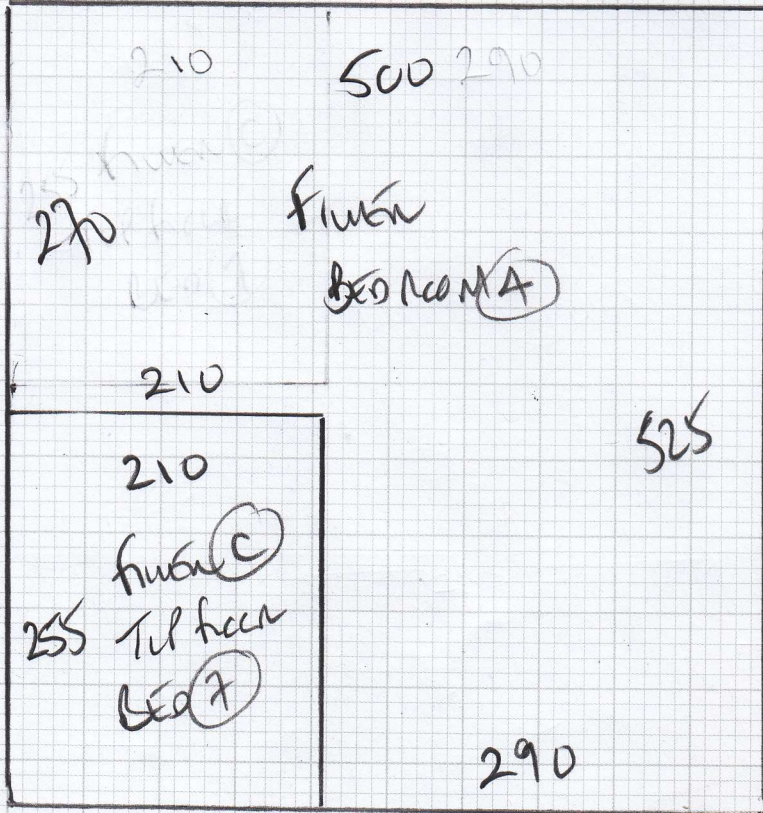 210 500 290
270
BEDROOM A
210
525
210
C
255 TOP FLOOR
BED 7
290